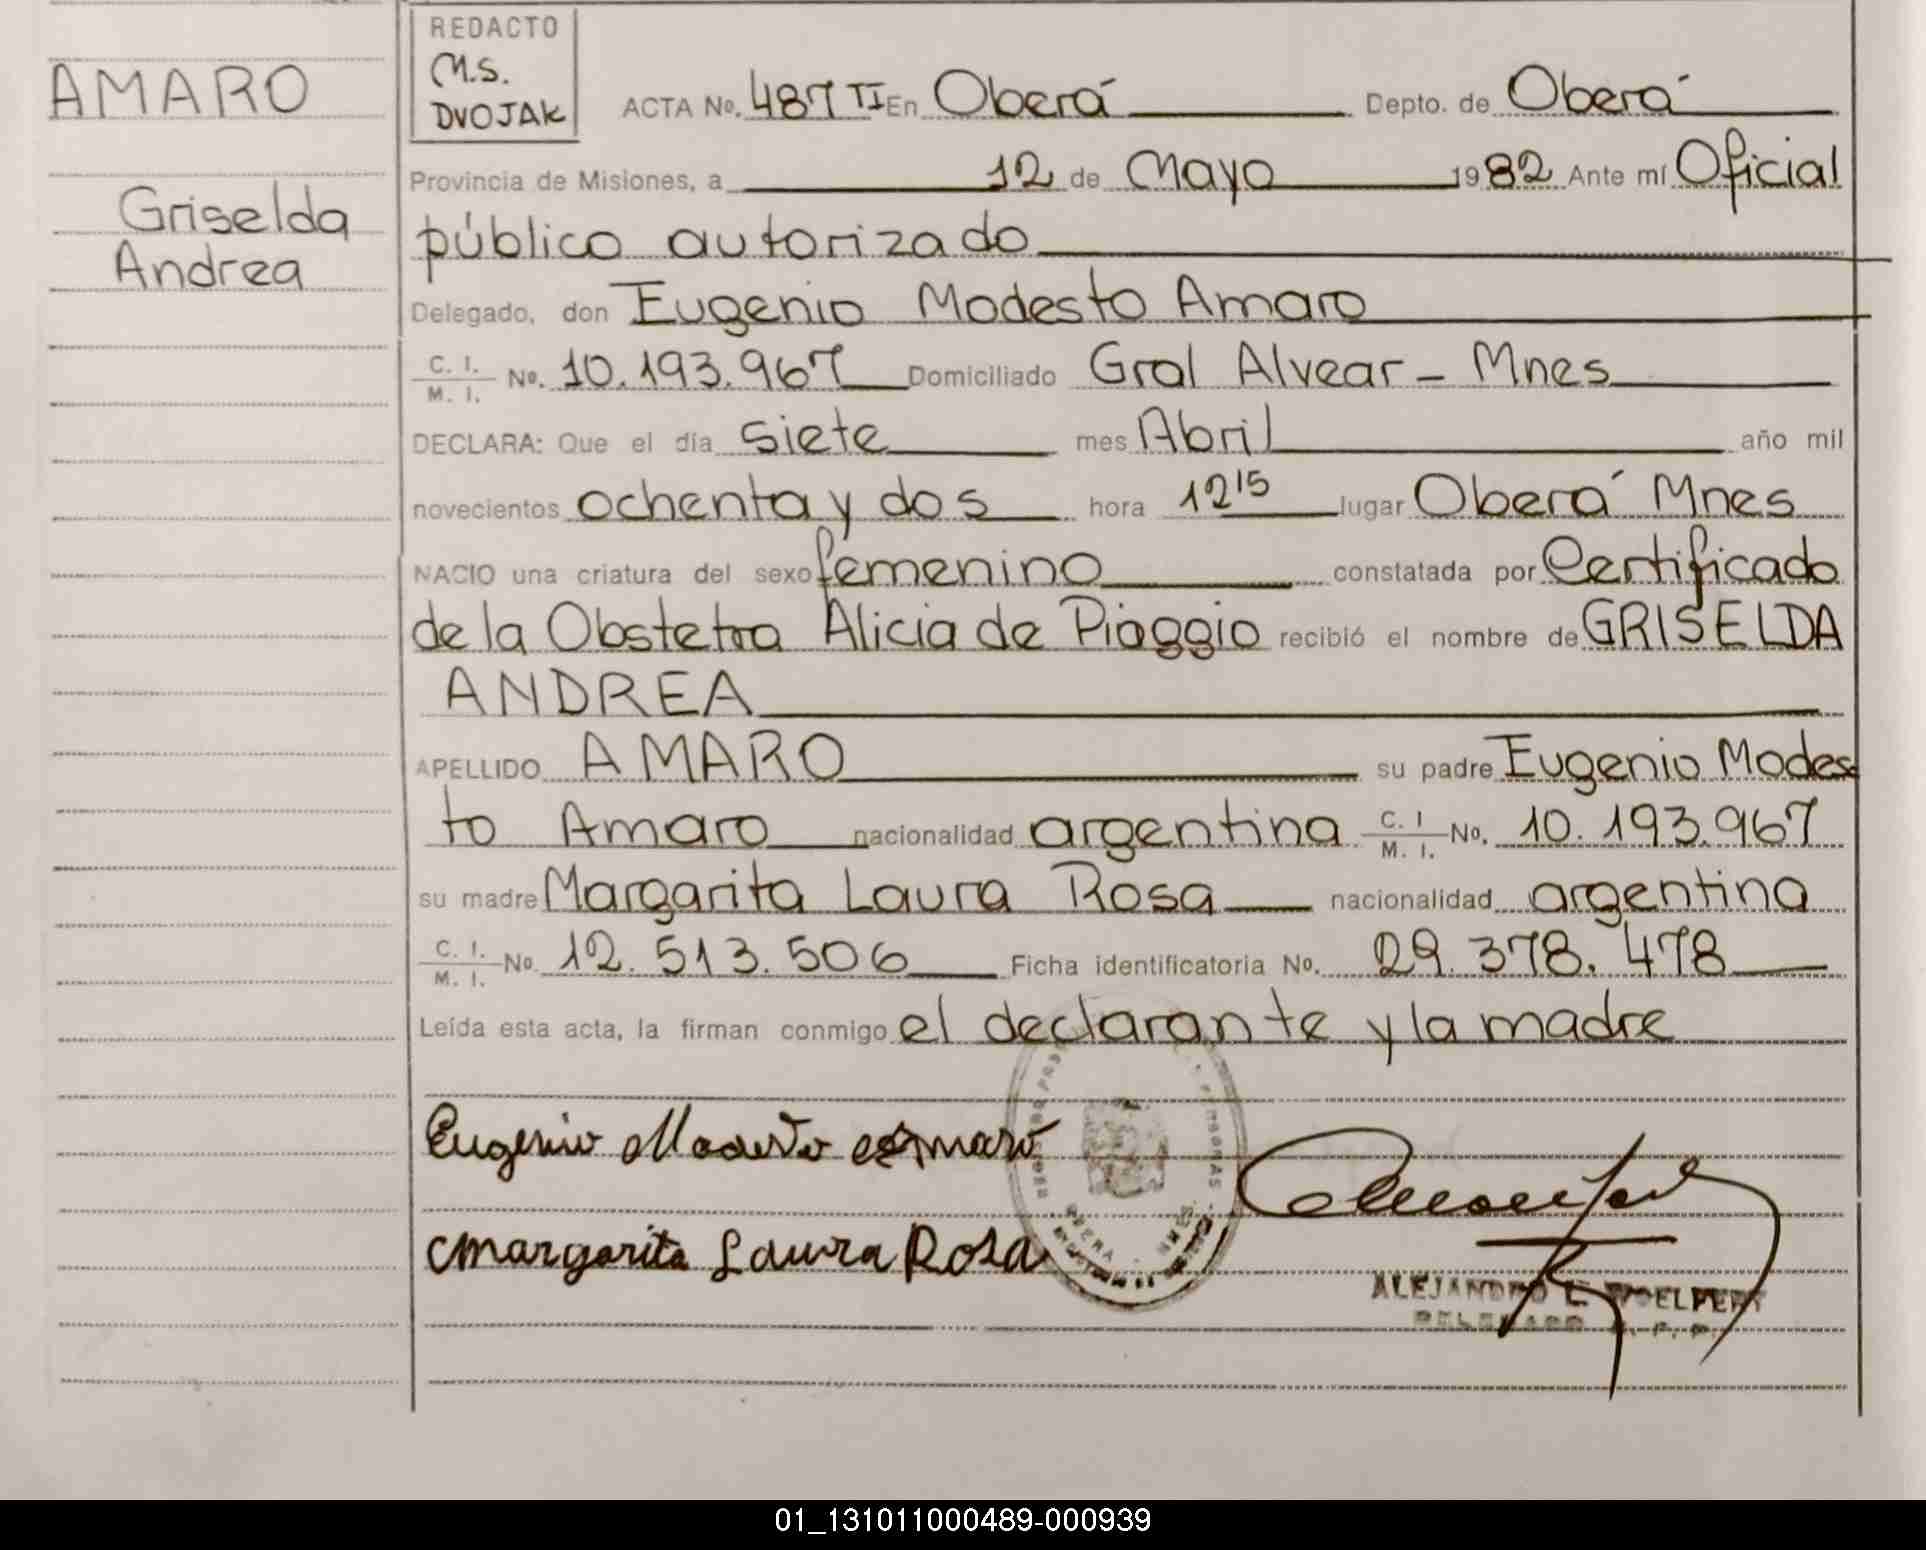 AMARO
Griselda
Andrea
REDACTO
M.S.
DVOJAK
ACTA No. 487 TI En Oberá Depto. de Oberá
Provincia de Misiones, a 12 de Mayo 1982 Ante mí Oficial
público autorizado
Delegado, don Eugenio Modesto Amaro
C. I. / M. I. No. 10.193.967 Domiciliado Gral Alvear - Mnes
DECLARA: Que el día siete mes Abril año mil
novecientos ochenta y dos hora 12 15 lugar Oberá Mnes
NACIO una criatura del sexo femenino constatada por Certificado
de la Obstetra Alicia de Piaggio recibió el nombre de GRISELDA
ANDREA
APELLIDO AMARO su padre Eugenio Modes
to Amaro nacionalidad argentina C. I / M. I. No. 10.193.967
su madre Margarita Laura Rosa nacionalidad argentina
C. I. / M. I. No. 12.513.506 Ficha identificatoria No. 29.378.478
Leída esta acta, la firman conmigo el declarante y la madre
Eugenio Modesto Amaro
Margarita Laura Rosa
ALEJANDRO L. WOELFERT
DELEGADO R. P. P.
01_131011000489-000939